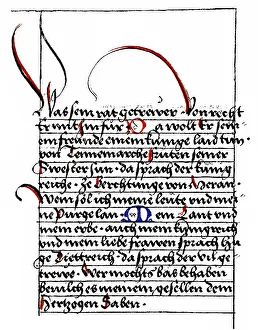 Was sein rat getrewer von recht
Er wil sin für
Da wolt Er sein
ein freunde einem künige laid tun
von Tennemarche Fruten seiner
Swester sun · da sprach der künig
reiche · ze Berchtunge von Meran ·
Wem sol ich meine leüte vnd mei
ne Pürge lan
Mein Lant vnd
mein erbe · auch mein künigreich
vnd mein liebe frawen sprach Hu
ge Diettreich · da sprach der vil ge
trewe · Wer möchts bas behaben
Beuilch es meinem gesellen dem
Hertzogen Saben ·